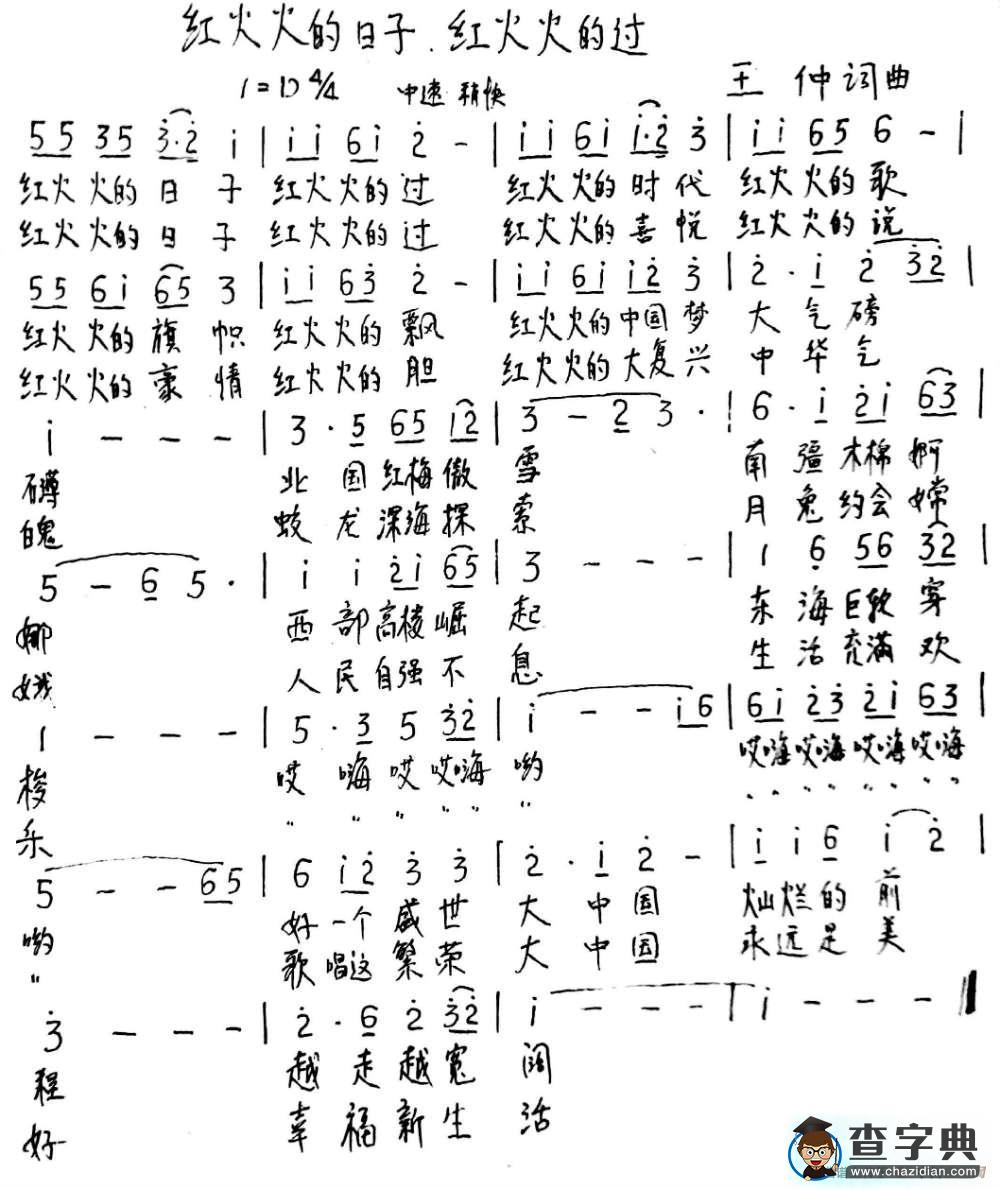 红火火的日子.红火火的过
1=D 4/4 中速 稍快 王 仲 词曲
5 5 3 5 3̇·2̇ i | i i 6 i 2̇ - | i i 6 i i·2̇ 3̇ | i i 6 5 6 - |
红火火的日子 红火火的过 红火火的时代 红火火的歌
红火火的日子 红火火的过 红火火的喜悦 红火火的说
5 5 6 i 6 5 3 | i i 6 3̇ 2̇ - | i i 6 i i 2̇ 3̇ | 2̇ · i 2̇ 3̇ 2̇ |
红火火的旗帜 红火火的飘 红火火的中国梦 大气磅
红火火的豪情 红火火的胆 红火火的大复兴 中华气
i - - - | 3 · 5 6 5 i 2̇ | 3 - 2 3 · | 6 · i 2̇ i 6 3 |
礴 北国红梅傲雪 南疆木棉婀
魄 蛟龙深海探索 月兔约会嫦
5 - 6 5 · | i i 2̇ i 6 5 | 3 - - - | 1 6̣ 5 6 3̇ 2̇ |
娜 西部高楼崛起 东海巨龙穿
娥 人民自强不息 生活充满欢
1 - - - | 5 · 3 5 3̇ 2̇ | i - - i 6 | 6 i 2̇ 3̇ 2̇ i 6 3 |
梭 哎嗨哎哎嗨哟 哎嗨哎嗨哎嗨哎嗨
乐 " " " " " " " " " " " " " "
5 - - 6 5 | 6 i 2̇ 3̇ 3̇ | 2̇ · i 2̇ - | i i 6 i 2̇ |
哟 好一个盛世 大中国 灿烂的前
" 歌唱这繁荣 大中国 永远是美
3̇ - - - | 2̇ · 6 2̇ 3̇ 2̇ | i - - - | i - - - ‖
程 越走越宽阔
好 幸福新生活
查字典
www.chazidian.com